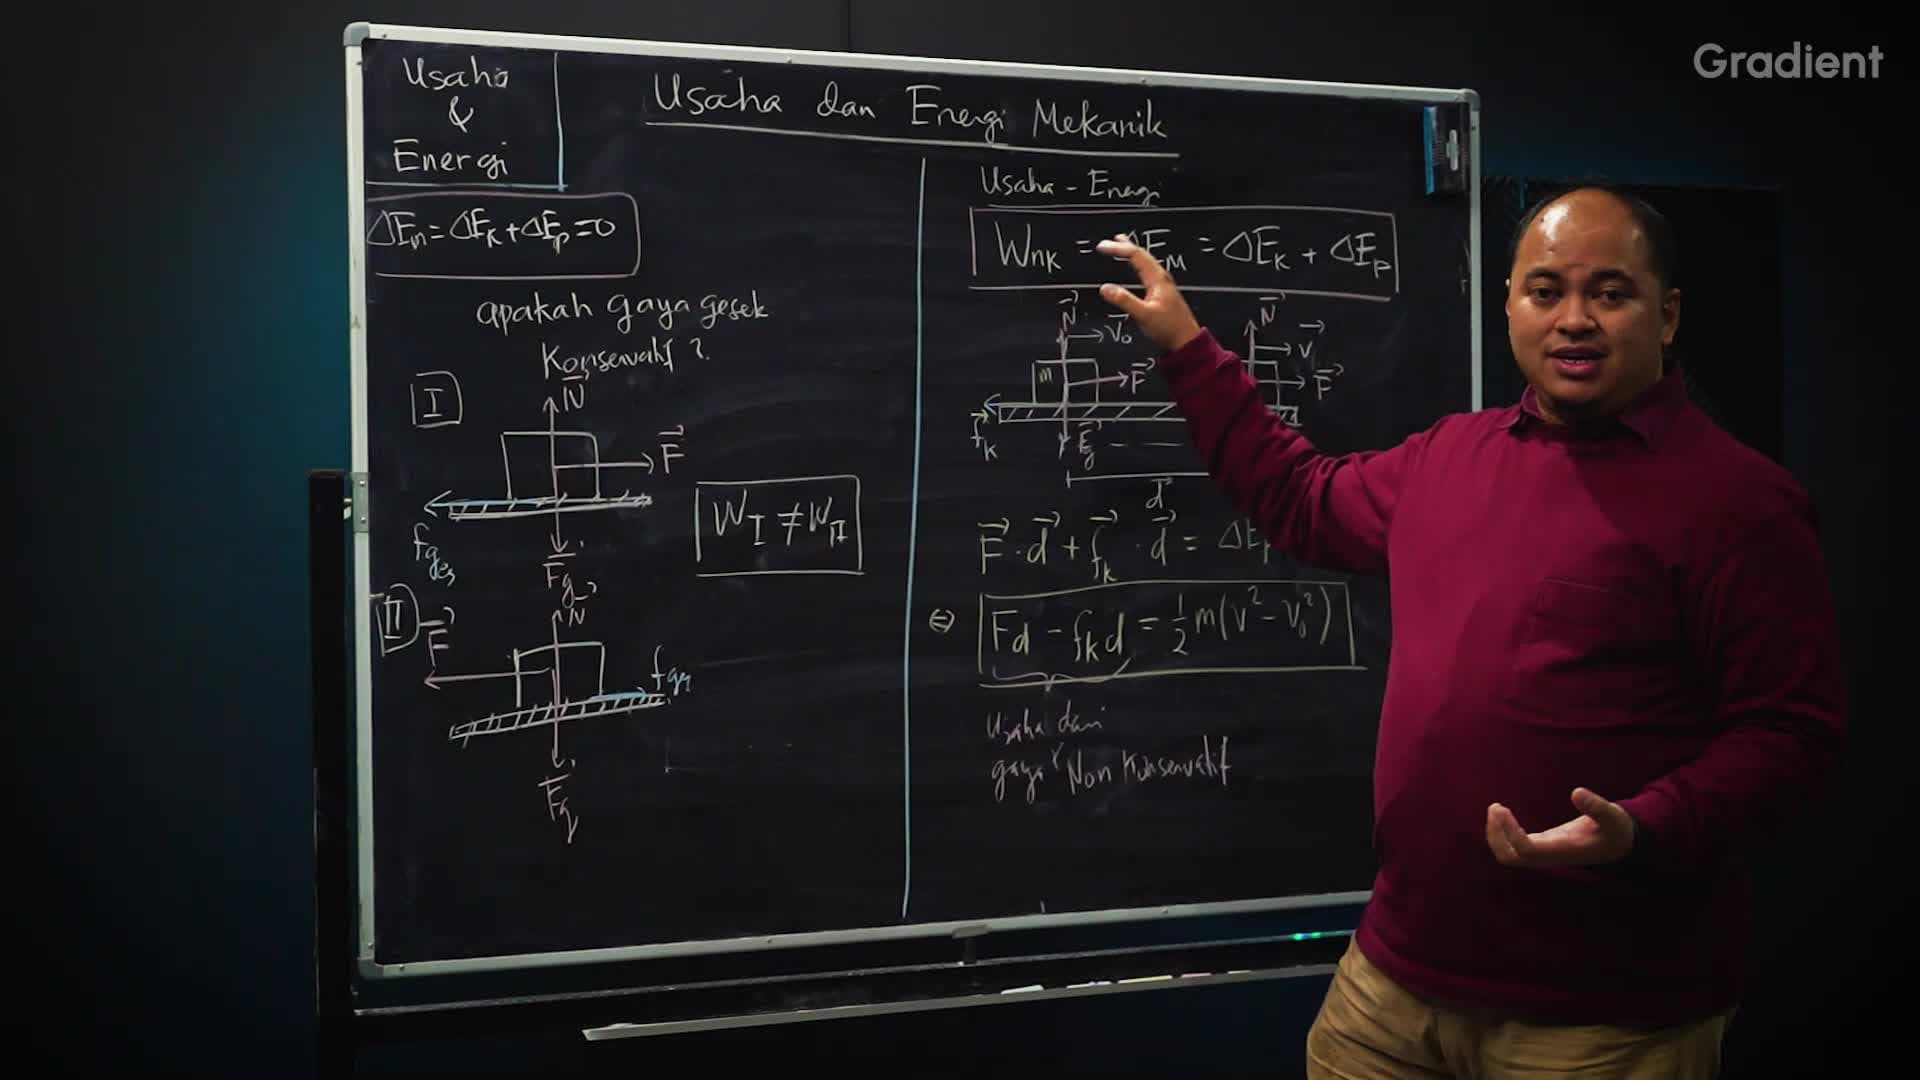 Gradient
Usaha
&
Energi
Usaha dan Energi Mekanik
ΔEm = ΔEk + ΔEp = 0
apakah gaya gesek
Konservatif ?
I
N⃗
F⃗
fges
F⃗g
W_I ≠ W_II
II
N⃗
F⃗
fges
F⃗g
Usaha - Energi
Wnk = ΔEM = ΔEK + ΔEp
N⃗
v⃗₀
m
F⃗
f⃗k
F⃗g
d⃗
N⃗
v⃗
F⃗
F⃗ · d⃗ + f⃗k · d⃗ =
⇔ Fd - fkd = ½ m(v² - v₀²)
Usaha dari
gaya² Non Konservatif